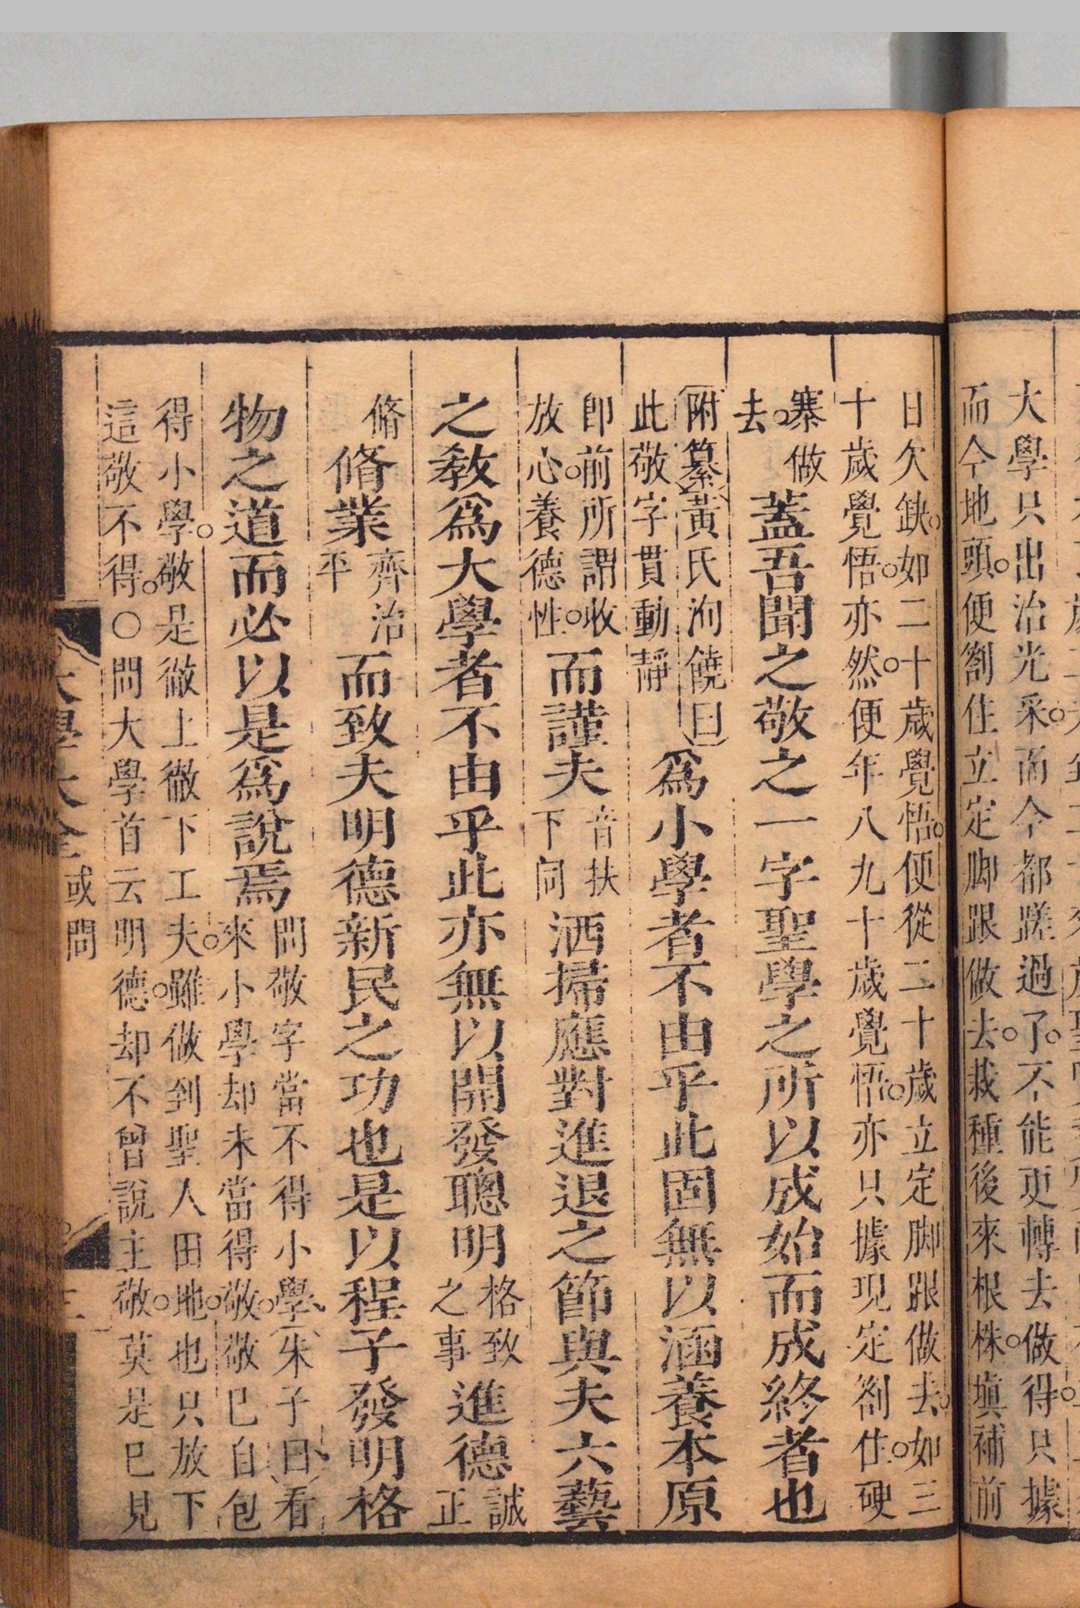 大學只出治光采而今都蹉過了不能更轉去做得只據
而今地頭便劄住立定脚跟做去栽種後來根株填補前
日欠缺如二十歲覺悟便從二十歲立定脚跟做去如三
十歲覺悟亦然便年八九十歲覺悟亦只據現定劄住硬
寨做
去
蓋吾聞之敬之一字聖學之所以成始而成終者也
附纂黃氏洵饒曰
此敬字貫動靜
為小學者不由乎此固無以涵養本原
卽前所謂收
放心養德性
而謹夫
音扶
下同
洒掃應對進退之節與夫六藝
之敎為大學者不由乎此亦無以開發聰明
格致
之事
進德
誠
正
脩
脩業
齊治
平
而致夫明德新民之功也是以程子發明格
物之道而必以是為說焉
問敬字當不得小學朱子曰看
來小學却未當得敬敬已自包
得小學敬是徹上徹下工夫雖做到聖人田地也只放下
這敬不得○問大學首云明德却不曾說主敬莫是已見
大學大全
或問
三